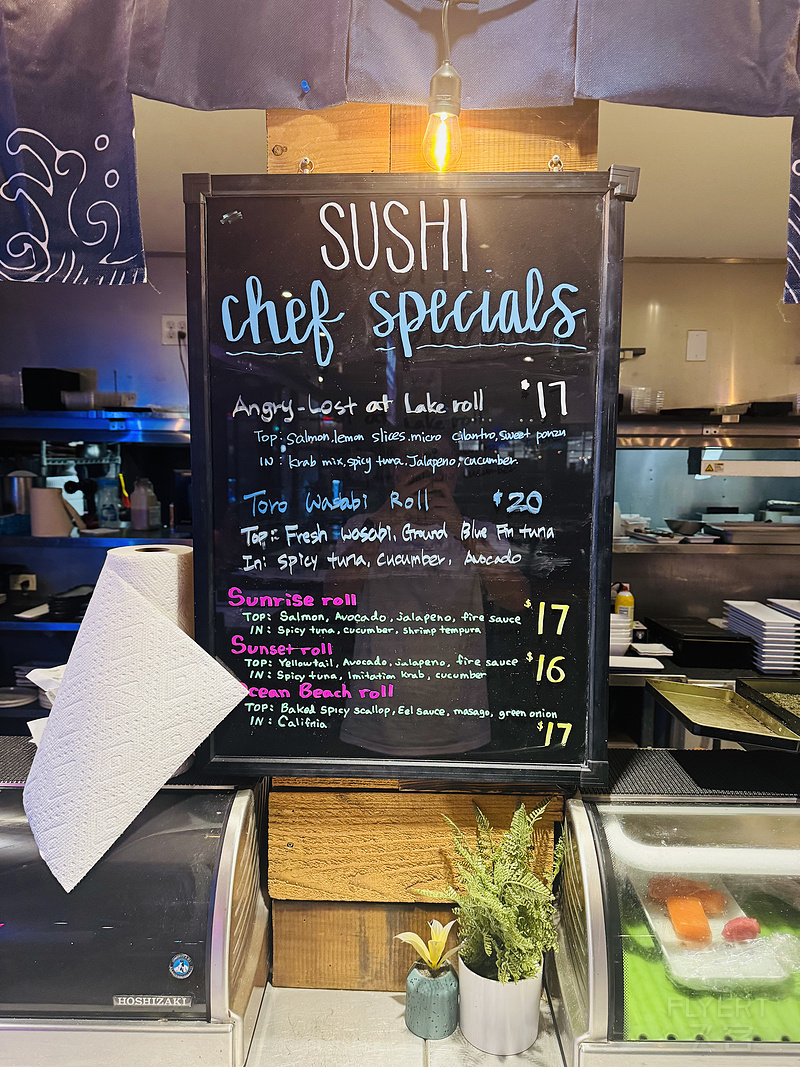 SUSHI
chef specials
Angry-Lost at Lake roll $17
Top: Salmon, lemon slices, micro cilantro, sweet ponzu
IN: Krab mix, spicy tuna, Jalapeno, cucumber.
Toro Wasabi Roll $20
Top: Fresh wasabi, Ground Blue Fin tuna
In: Spicy tuna, Cucumber, Avocado
Sunrise roll
TOP: Salmon, Avocado, jalapeno, fire sauce $17
IN: Spicy tuna, cucumber, shrimp tempura
Sunset roll
TOP: Yellowtail, Avocado, jalapeno, fire sauce $16
IN: Spicy tuna, Imitation Krab, cucumber
cean Beach roll
TOP: Baked spicy scallop, Eel sauce, masago, green onion
IN: Califnia $17
HOSHIZAKI
FLYERT